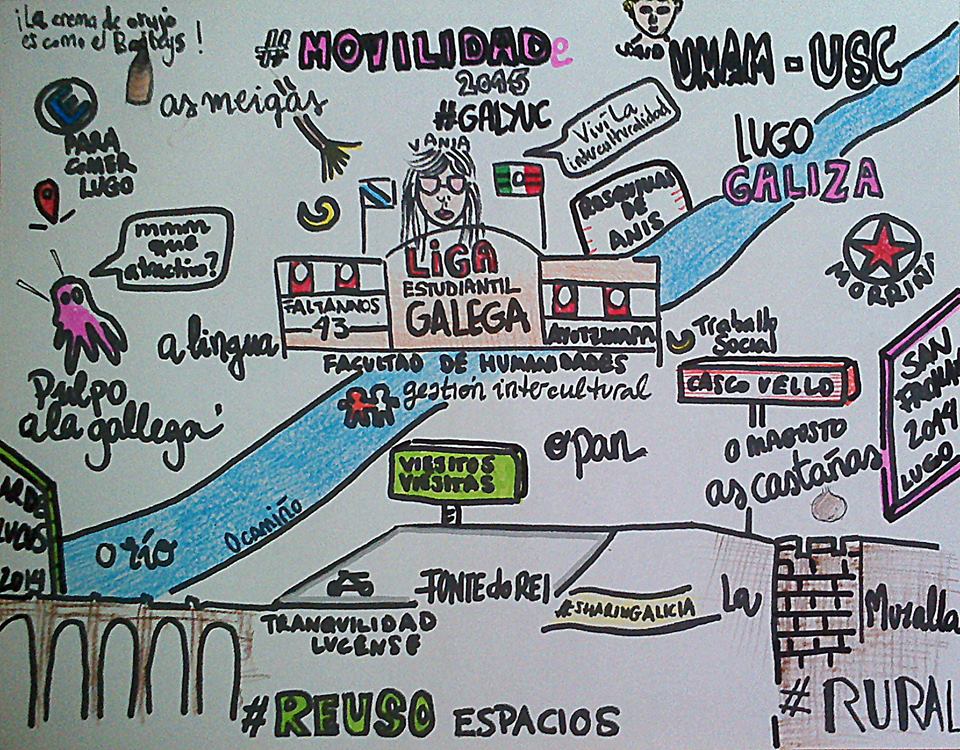 ¡La crema de orujo
es como el Baileys!
#MOVILIDADe
2015
#GALYUC
UNAM-USC
as meigas
PARA
COMER
LUGO
VANIA
Viví La
interculturalidad
ROSQUIÑAS
DE
ANIS
LUGO
GALIZA
MORRIÑA
mmm
que
atractivo?
Pulpo
a la gallega
a lingua
LIGA
ESTUDIANTIL
GALEGA
FALTANNOS
43
AYOTZINAPA
FACULTAD DE HUMANIDADES
gestión intercultural
Traballo
Social
CASCO VELLO
O MAGUSTO
as castañas
SAN
2014
LUGO
VIEJITOS
VIEJITAS
o pan
ARDE
LUCUS
2014
o río
O camiño
FONTE do REI
#SHARINGALICIA
TRANQUILIDAD
LUCENSE
La
Muralla
#REUSO ESPACIOS
#RURAL